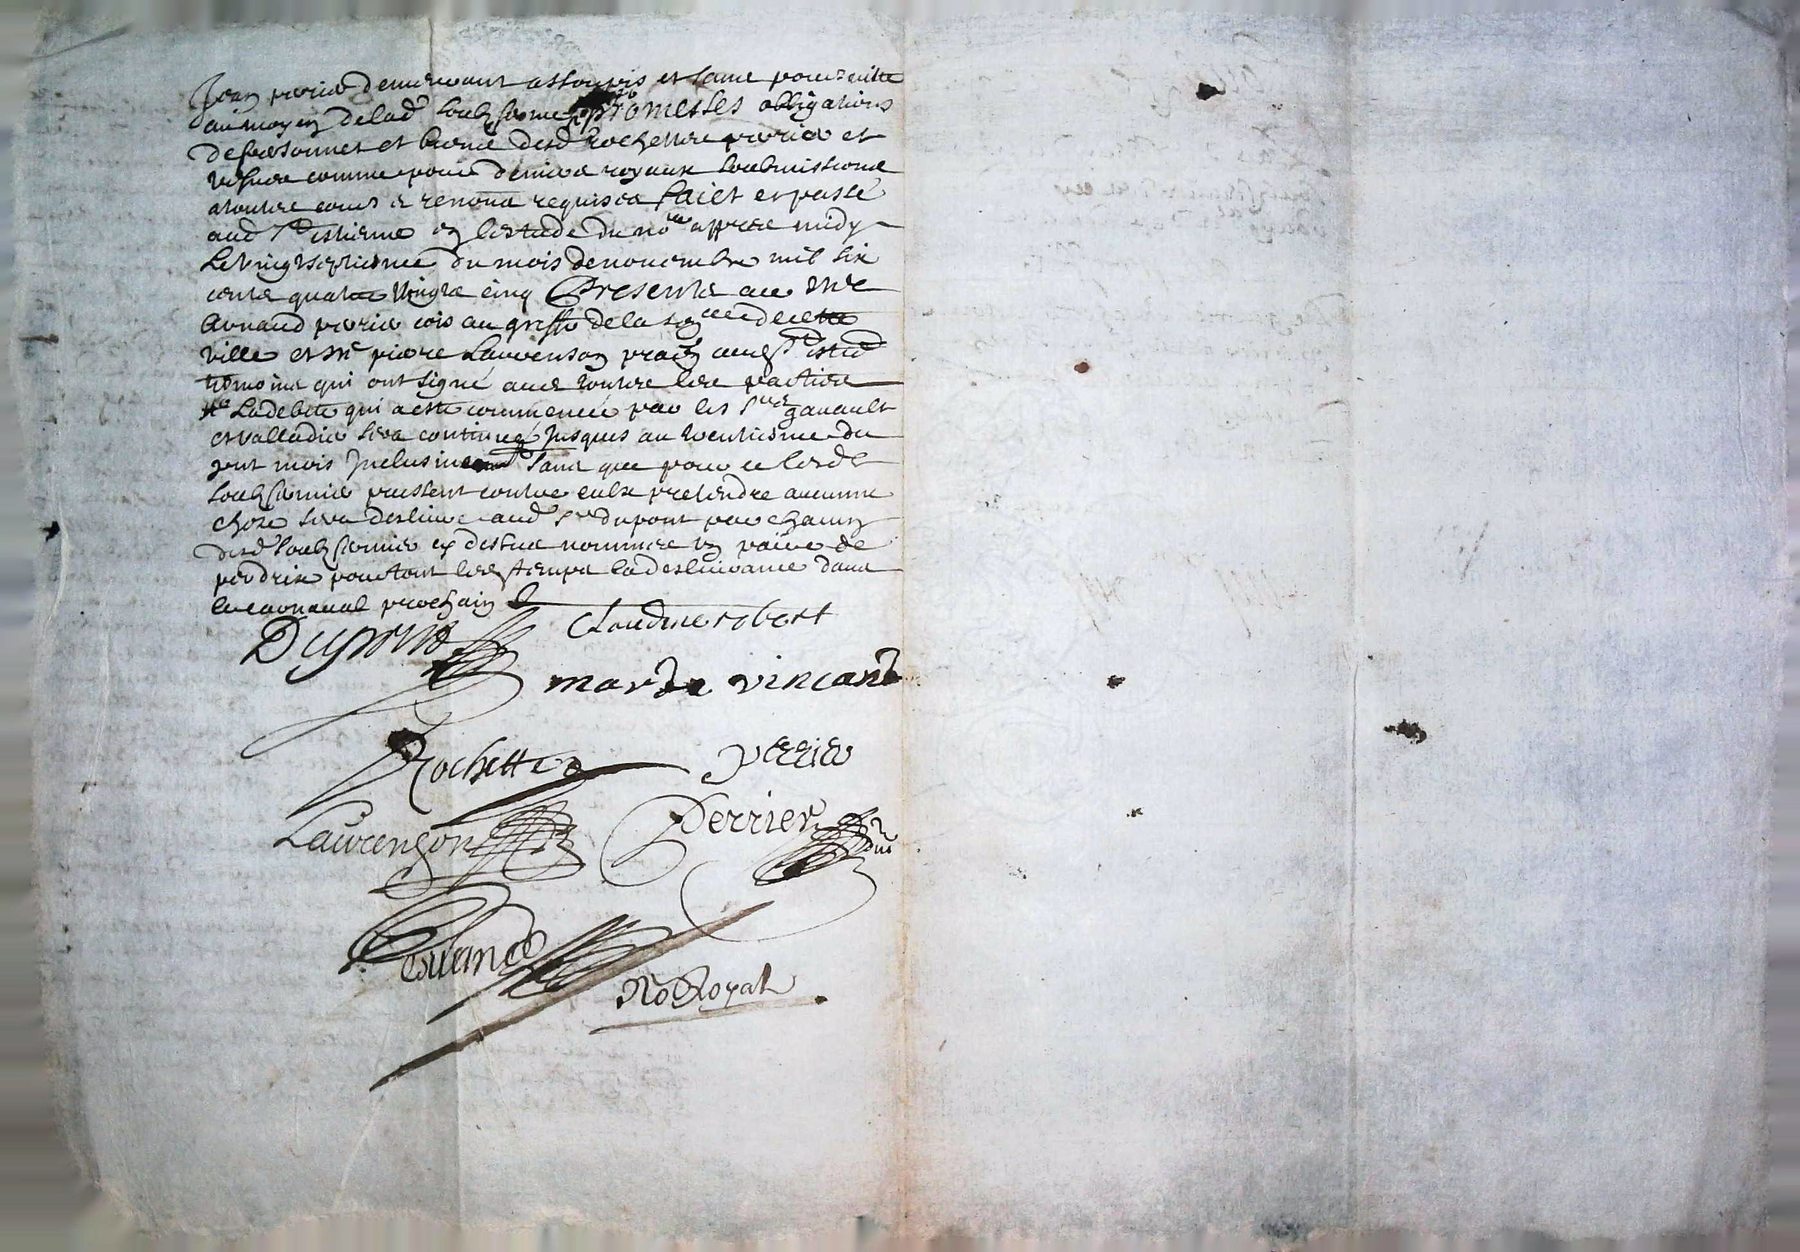 Jean perier demeurant assoupis et sans poursuitte
au moyen de lad soubzferme promesses obligations
de personnes et biens desd Rochette perier et
comme pour deniers royaux soubmissions
a toutes cours renona requises faict et passé
aud St estienne en lestude du nore appres midy
le vingtseptiesme du mois de novembre mil six
cents quatre vingts cinq Presents Me
Arnaud perier cois au greffe de la de cette
ville et Me pierre Laurenson praen aud St estie
tesmoins qui ont signé avec toutes les parties
La debite qui a esté commencée par les srs gavault
et valladier sera continuée jusques au trentiesme du
pnt mois inclusivemt sans que pour ce lesd
soubzfermiers puissent contre eulx pretendre aucune
chose sera deslivré aud sr dupont par chacun
desd soubzfermiers cy dessus nommes un paire de
perdrix pour tout les temps la deslivrance dans
le carnaval prochain
Dupont claudine robert
marte vincant
Rochette perrier
Laurençon Perrier
No Royal